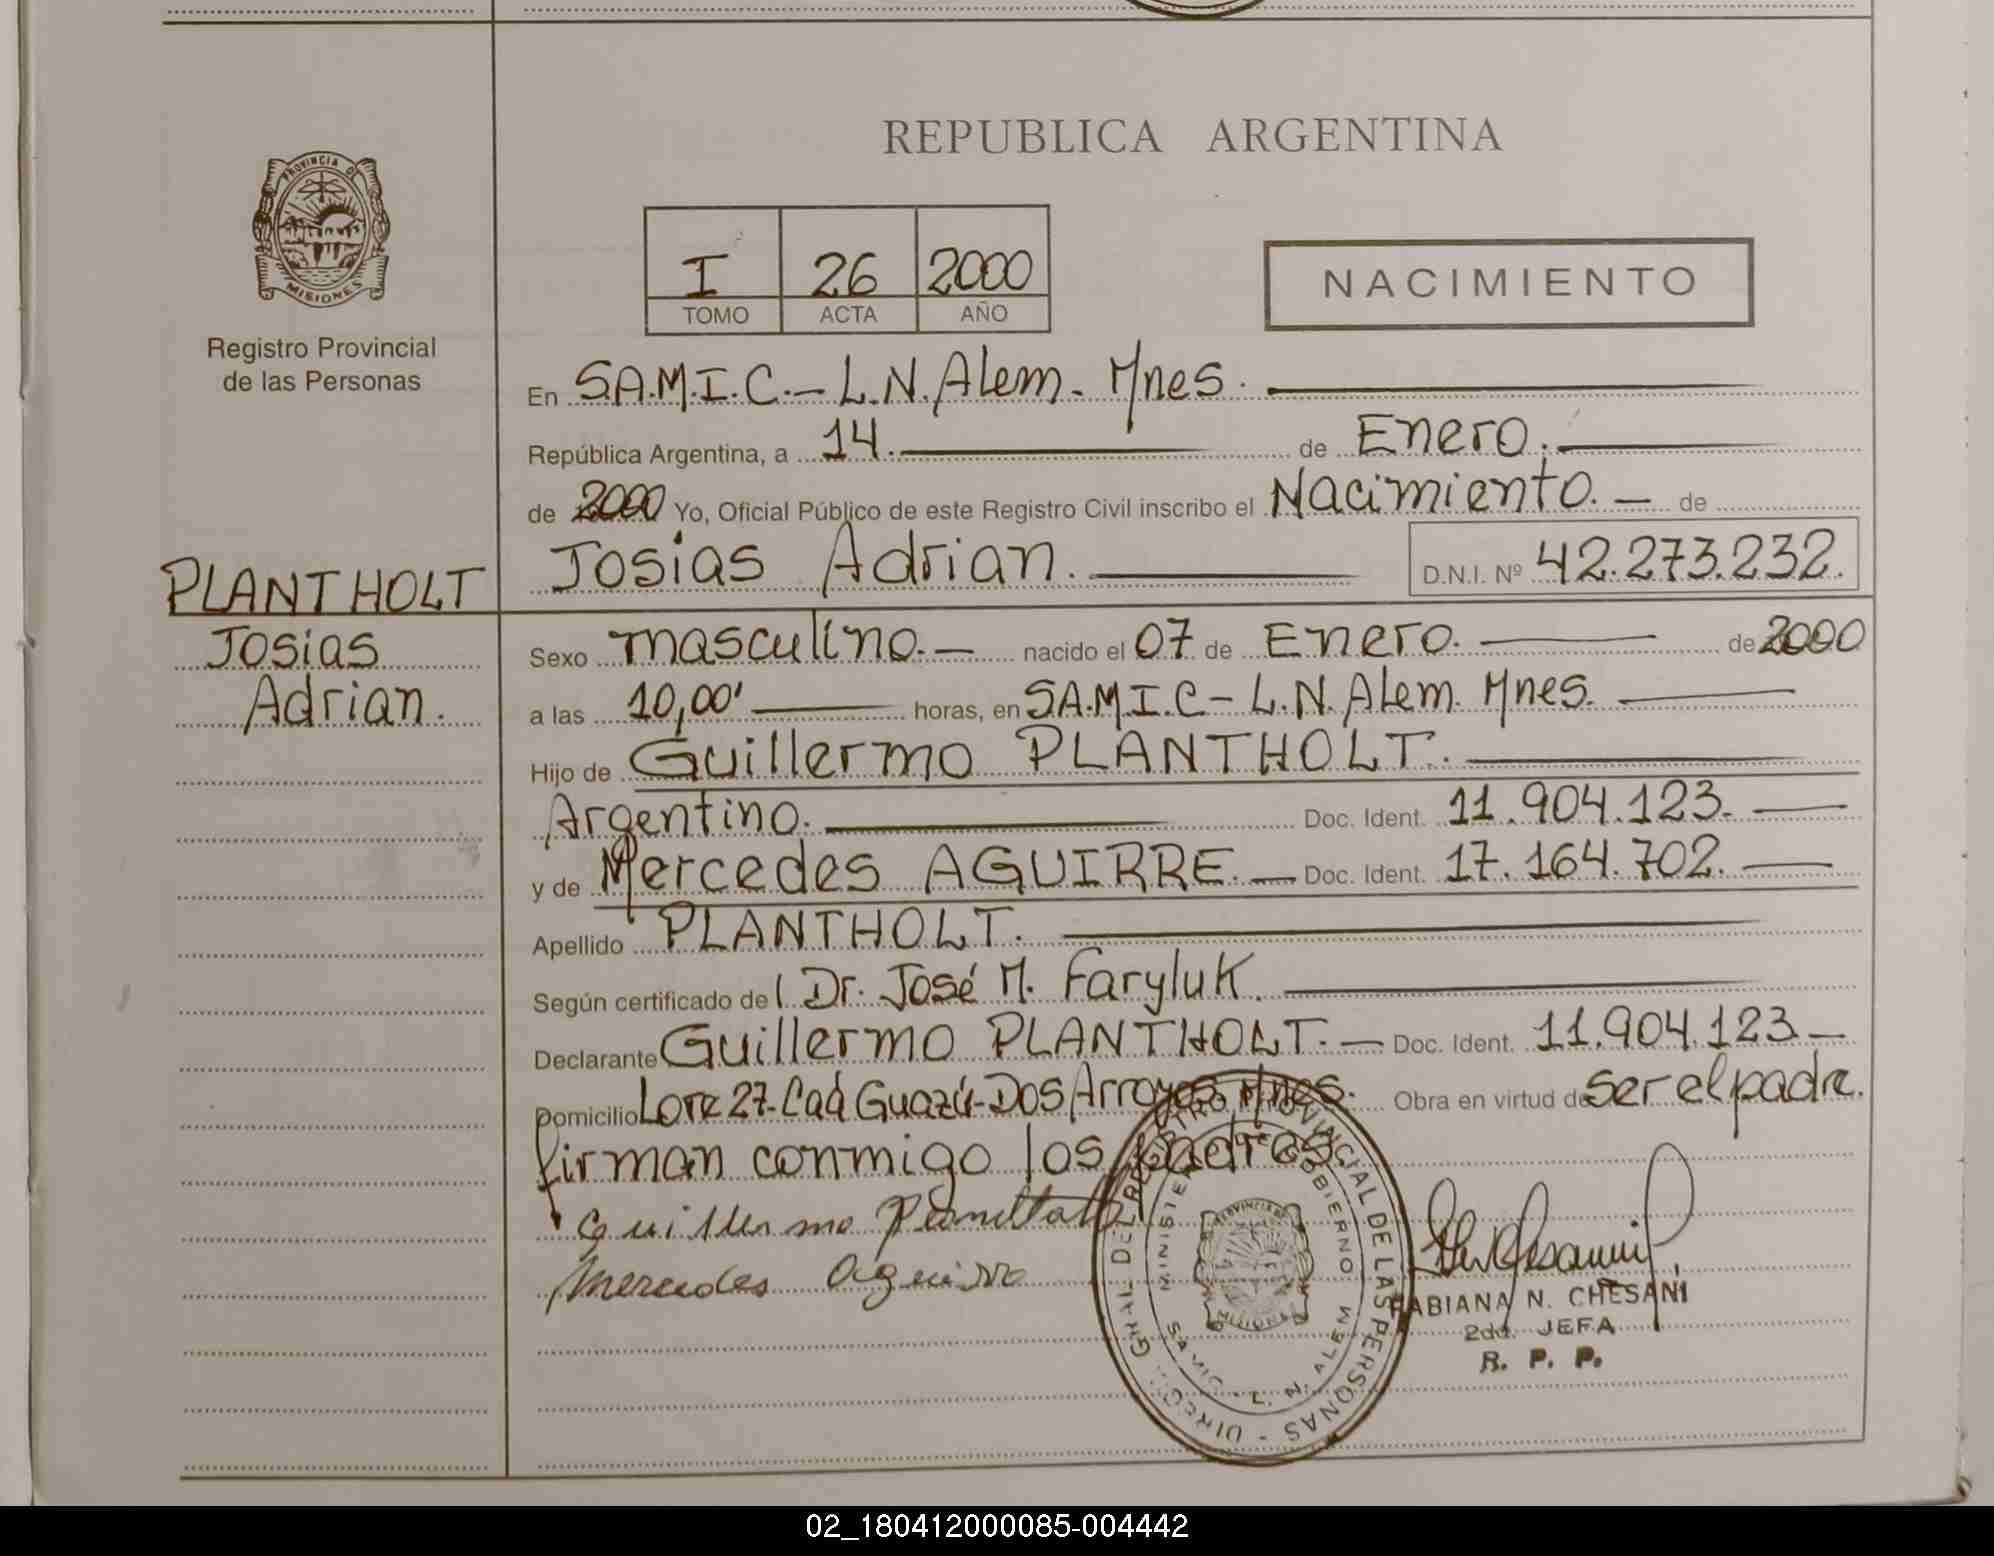 REPUBLICA ARGENTINA
PROVINCIA DE
MISIONES
Registro Provincial
de las Personas
I 26 2000
TOMO ACTA AÑO
NACIMIENTO
En S.A.M.I.C.- L.N. Alem. Mnes.
República Argentina, a 14. de Enero.
de 2000 Yo, Oficial Público de este Registro Civil inscribo el Nacimiento. de
Josias Adrian. D.N.I. Nº 42.273.232.
PLANTHOLT
Josias
Adrian.
Sexo masculino. nacido el 07 de Enero. de 2000
a las 10,00' horas, en S.A.M.I.C - L.N. Alem. Mnes.
Hijo de Guillermo PLANTHOLT.
Argentino. Doc. Ident. 11.904.123.
y de Mercedes AGUIRRE. Doc. Ident. 17.164.702.
Apellido PLANTHOLT.
Según certificado del Dr. José M. Faryluk.
Declarante Guillermo PLANTHOLT. Doc. Ident. 11.904.123
Domicilio Lote 27-Caá Guazú-Dos Arroyos, Mnes. Obra en virtud de ser el padre.
firman conmigo los padres.
Guillermo
Mercedes Aguirre
DIREC. GRAL. DEL REGISTRO PROVINCIAL DE LAS PERSONAS
MINISTERIO DE GOBIERNO
SAMIC - L. N. ALEM
FABIANA N. CHESANI
2da. JEFA
R. P. P.
02_180412000085-004442